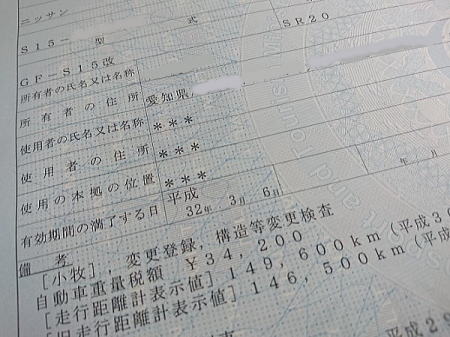 ニッサン
S15- 型式 SR20
GF-S15改
所有者の氏名又は名称
所有者の住所 愛知県
使用者の氏名又は名称 ***
使用者の住所 ***
使用の本拠の位置 ***
有効期間の満了する日 平成32年 3月 6日 年 月
備考
[小牧],変更登録,構造等変更検査
自動車重量税額 ¥34,200
[走行距離計表示値] 149,600km(平成30
[旧走行距離計表示値] 146,500km(平成
平成29